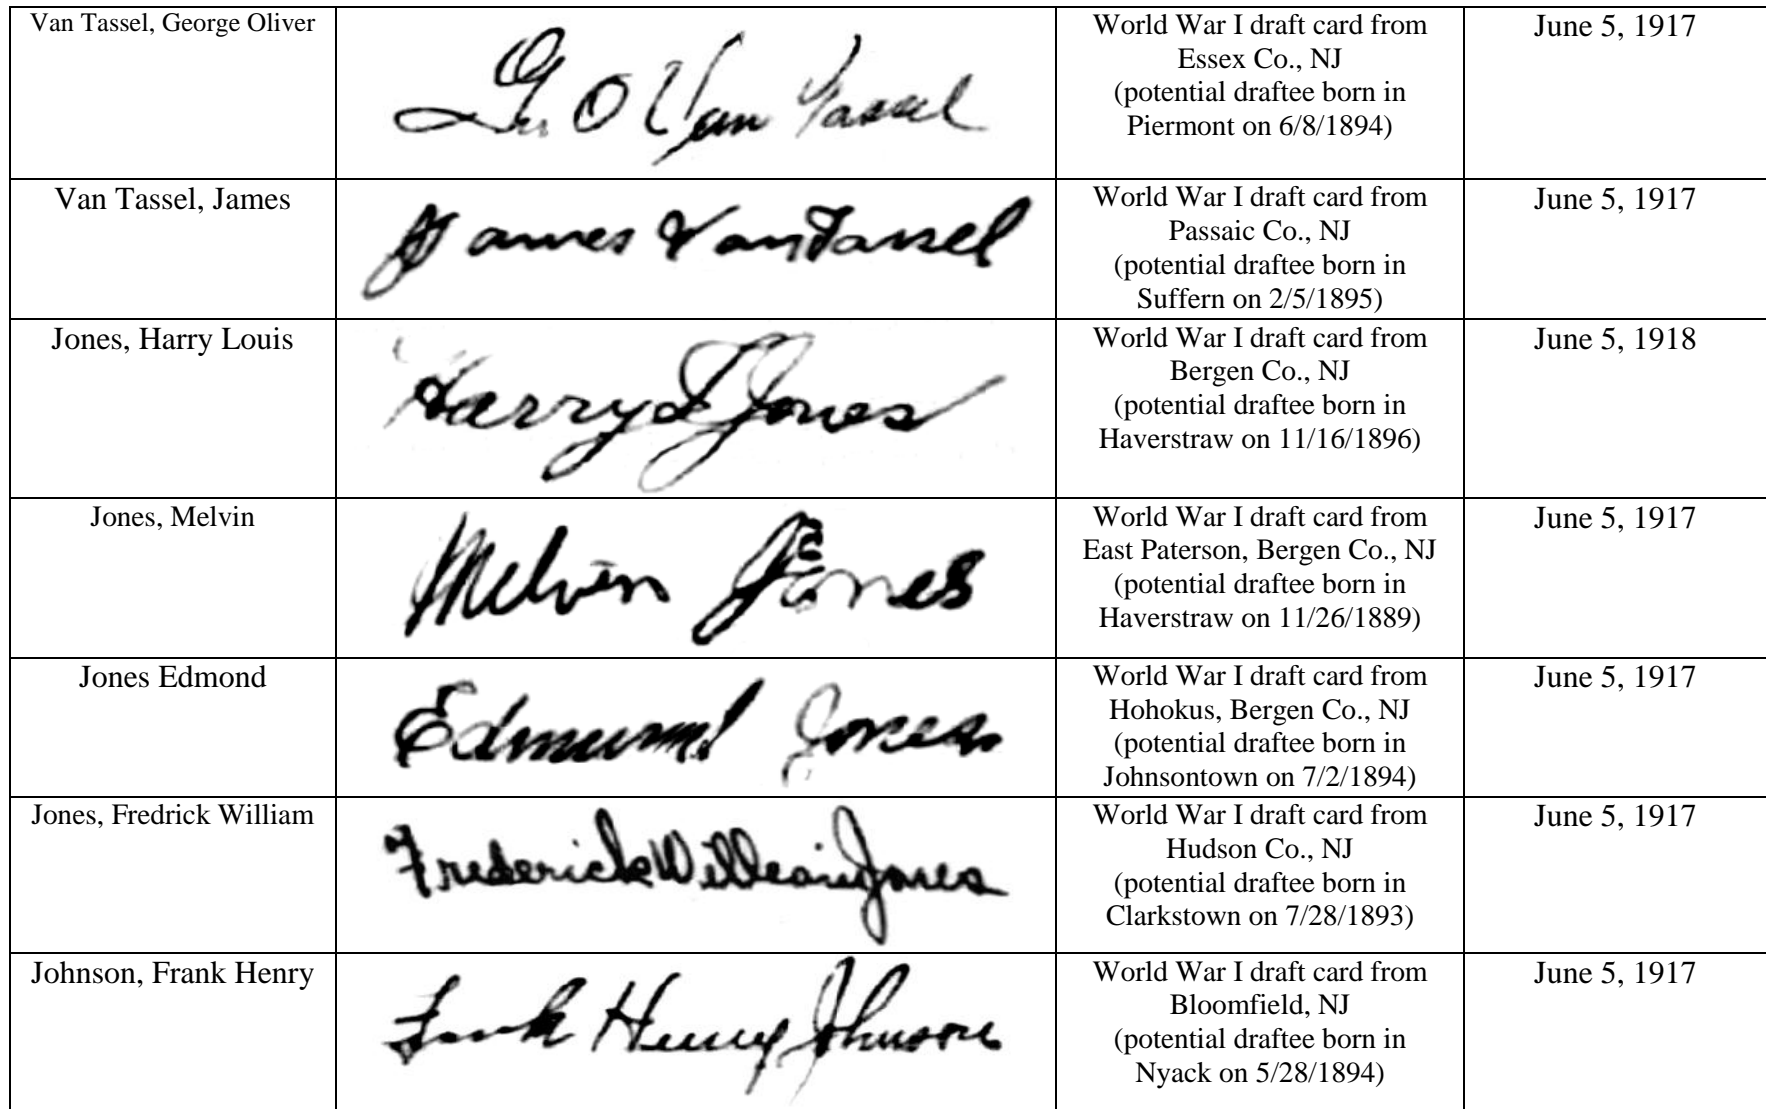 Van Tassel, George Oliver
Geo O Van Tassel
World War I draft card from
Essex Co., NJ
(potential draftee born in
Piermont on 6/8/1894)
June 5, 1917
Van Tassel, James
James Van Tassel
World War I draft card from
Passaic Co., NJ
(potential draftee born in
Suffern on 2/5/1895)
June 5, 1917
Jones, Harry Louis
Harry L Jones
World War I draft card from
Bergen Co., NJ
(potential draftee born in
Haverstraw on 11/16/1896)
June 5, 1918
Jones, Melvin
Melvin Jones
World War I draft card from
East Paterson, Bergen Co., NJ
(potential draftee born in
Haverstraw on 11/26/1889)
June 5, 1917
Jones Edmond
Edmund Jones
World War I draft card from
Hohokus, Bergen Co., NJ
(potential draftee born in
Johnsontown on 7/2/1894)
June 5, 1917
Jones, Fredrick William
Frederick William Jones
World War I draft card from
Hudson Co., NJ
(potential draftee born in
Clarkstown on 7/28/1893)
June 5, 1917
Johnson, Frank Henry
Frank Henry Johnson
World War I draft card from
Bloomfield, NJ
(potential draftee born in
Nyack on 5/28/1894)
June 5, 1917